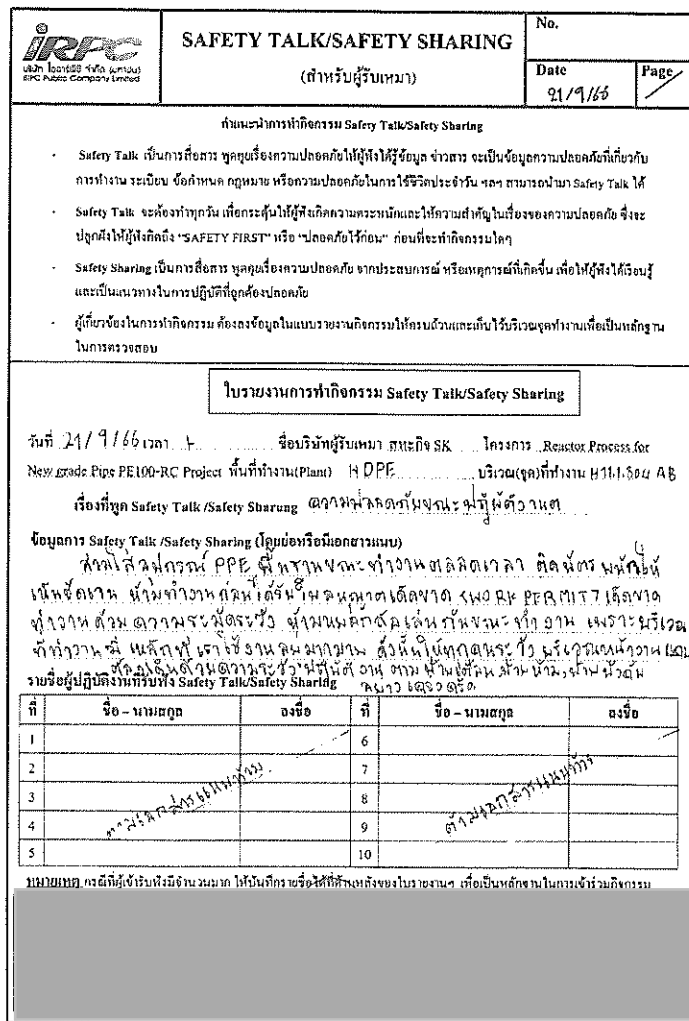 IRPC
บริษัท ไออาร์พีซี จำกัด (มหาชน)
IRPC Public Company Limited
SAFETY TALK/SAFETY SHARING
(สำหรับผู้รับเหมา)
No.
Date
21/9/66
Page
คำแนะนำการทำกิจกรรม Safety Talk/Safety Sharing
- Safety Talk เป็นการสื่อสาร พูดคุยเรื่องความปลอดภัยให้ผู้ฟังได้รู้ข้อมูล ข่าวสาร จะเป็นข้อมูลความปลอดภัยที่เกี่ยวกับ
การทำงาน ระเบียบ ข้อกำหนด กฎหมาย หรือความปลอดภัยในการใช้ชีวิตประจำวัน ฯลฯ สามารถนำมา Safety Talk ได้
- Safety Talk จะต้องทำทุกวัน เพื่อกระตุ้นให้ผู้ฟังเกิดความตระหนักและให้ความสำคัญในเรื่องของความปลอดภัย ซึ่งจะ
ปลูกฝังให้ผู้ฟังคิดถึง "SAFETY FIRST" หรือ "ปลอดภัยไว้ก่อน" ก่อนที่จะทำกิจกรรมใดๆ
- Safety Sharing เป็นการสื่อสาร พูดคุยเรื่องความปลอดภัย จากประสบการณ์ หรือเหตุการณ์ที่เกิดขึ้น เพื่อให้ผู้ฟังได้เรียนรู้
และเป็นแนวทางในการปฏิบัติที่ถูกต้องปลอดภัย
- ผู้เกี่ยวข้องในการทำกิจกรรม ต้องลงข้อมูลในแบบรายงานกิจกรรมให้ครบถ้วนและเก็บไว้บริเวณจุดทำงานเพื่อเป็นหลักฐาน
ในการตรวจสอบ
ใบรายงานการทำกิจกรรม Safety Talk/Safety Sharing
วันที่ 21/9/66 เวลา ชื่อบริษัทผู้รับเหมา สหะกิจ SK โครงการ Reactor Process for
New grade Pipe PE100-RC Project พื้นที่ทำงาน(Plant) HDPE บริเวณ(จุด)ที่ทำงาน
เรื่องที่พูด Safety Talk /Safety Sharung ความปลอดภัยขณะปฏิบัติงาน
ข้อมูลการ Safety Talk /Safety Sharing (โดยย่อหรือมีเอกสารแนบ)
สวมใส่อุปกรณ์ PPE พื้นฐานขณะทำงานตลอดเวลา ติดบัตรพนักให้
เห็นชัดเจน ห้ามทำงานก่อนได้รับใบอนุญาตเด็ดขาด WORK PERMIT เด็ดขาด
ทำงานด้วยความระมัดระวัง ห้ามหยอกล้อเล่นกันขณะทำงาน เพราะบริเวณ
ที่ทำงานมี เหล็กที่เราใช้งาน ดังนั้นให้ทุกคนระวัง บริเวณหน้างาน
ด้วยความระวัง
รายชื่อผู้ปฏิบัติงานที่รับฟัง Safety Talk/Safety Sharing
ที่ ชื่อ – นามสกุล ลงชื่อ ที่ ชื่อ – นามสกุล ลงชื่อ
1 6
2 7
3 ตามเอกสารแนบท้าย 8 ตามเอกสารแนบท้าย
4 9
5 10
หมายเหตุ กรณีที่ผู้เข้ารับฟังมีจำนวนมาก ให้บันทึกรายชื่อได้ที่ด้านหลังของใบรายงานฯ เพื่อเป็นหลักฐานในการเข้าร่วมกิจกรรม